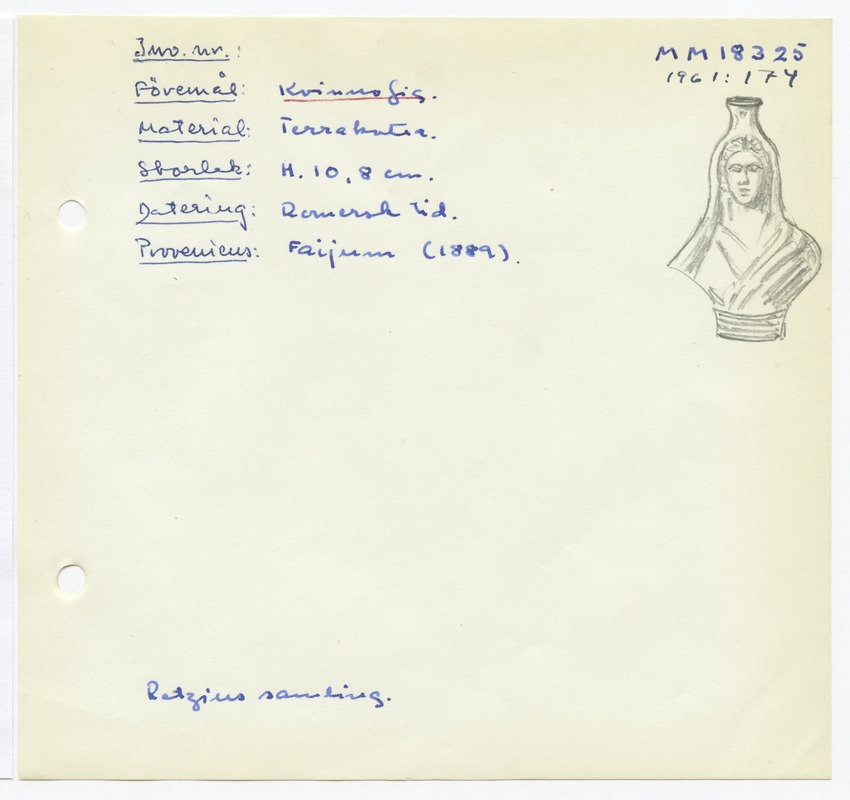 Inv. nr.: MM18325
1961:174
Föremål: Kvinnofig.
Material: Terrakotta.
Storlek: H. 10,8 cm.
Datering: Romersk tid.
Proveniens: Faijum (1889).
Retzius samling.